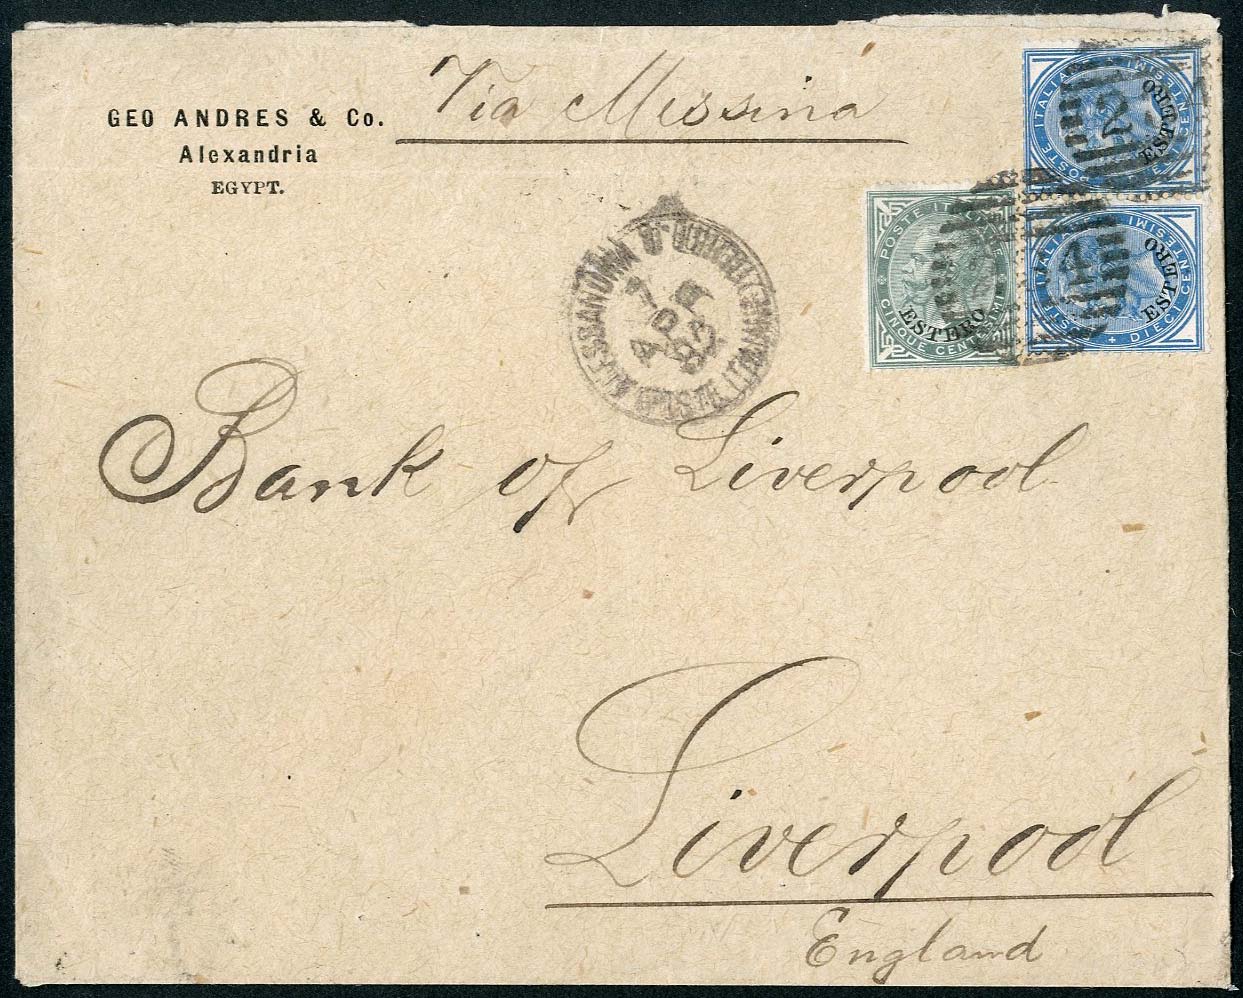 Via Messina
GEO ANDRES & Co.
Alexandria
EGYPT.
ALESSANDRIA D'EGITTO
POSTE ITALIANE
7 6
APR
82
POSTE ITALIANE
DIECI CENTESIMI
ESTERO
POSTE ITALIANE
CINQUE CENTESIMI
ESTERO
POSTE ITALIANE
DIECI CENTESIMI
ESTERO
Bank of Liverpool
Liverpool
England